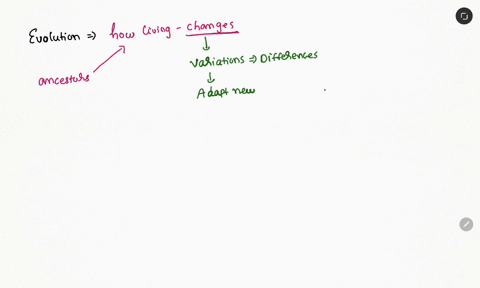 Evolution ⇒ how living - changes
ancestors
variations ⇒ Differences
Adapt new